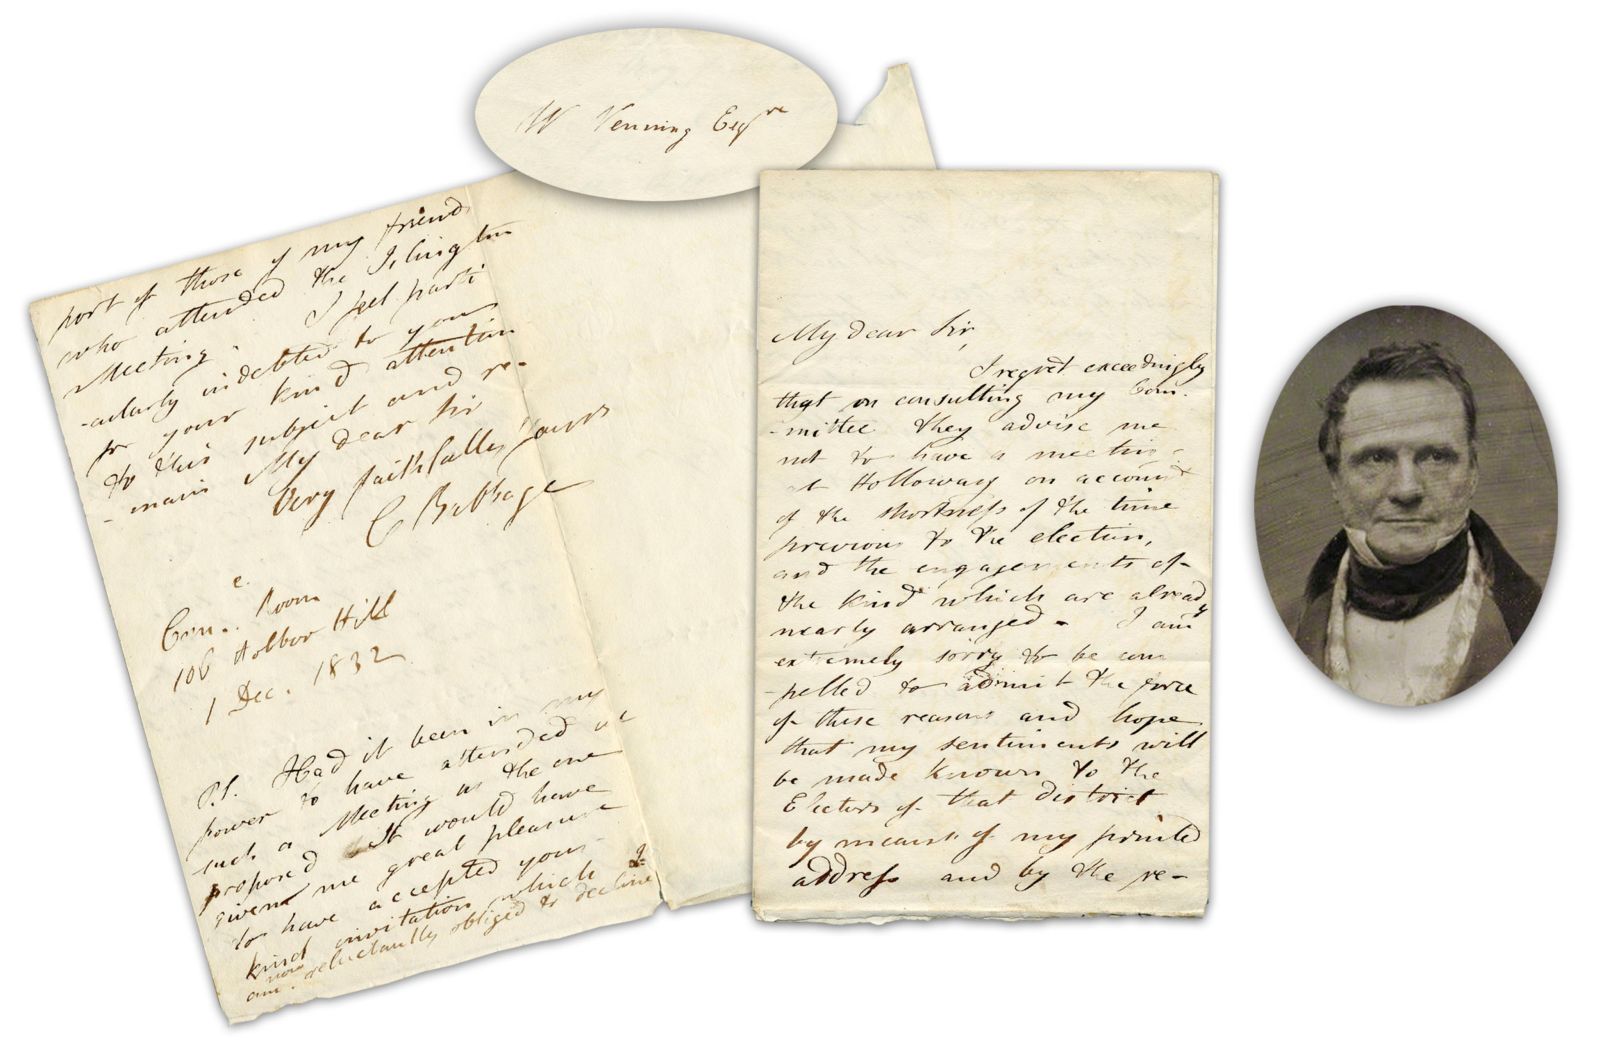 W Venning Esqre
My dear Sir,
I regret exceedingly
that on consulting my Com-
-mittee they advise me
not to have a meeting
at Holloway on account
of the shortness of the time
previous to the election,
and the engagements of
the kind which are already
nearly arranged. I am
extremely sorry to be com
-pelled to admit the force
of these reasons and hope
that my sentiments will
be made known to the
Electors of that district
by means of my printed
address and by the re-
port of those of my friend
who attended the Islington
Meeting. I feel parti
-cularly indebted to you
for your kind attention
to this subject and re-
-main My dear Sir
Very faithfully Yours
C Babbage
Come. Room
106 Holbor Hill
1 Dec. 1832
P.S. Had it been in my
power to have attended
such a Meeting as the one
proposed It would have
given me great pleasure
to have accepted your
kind invitation which I
am now reluctantly obliged to decline